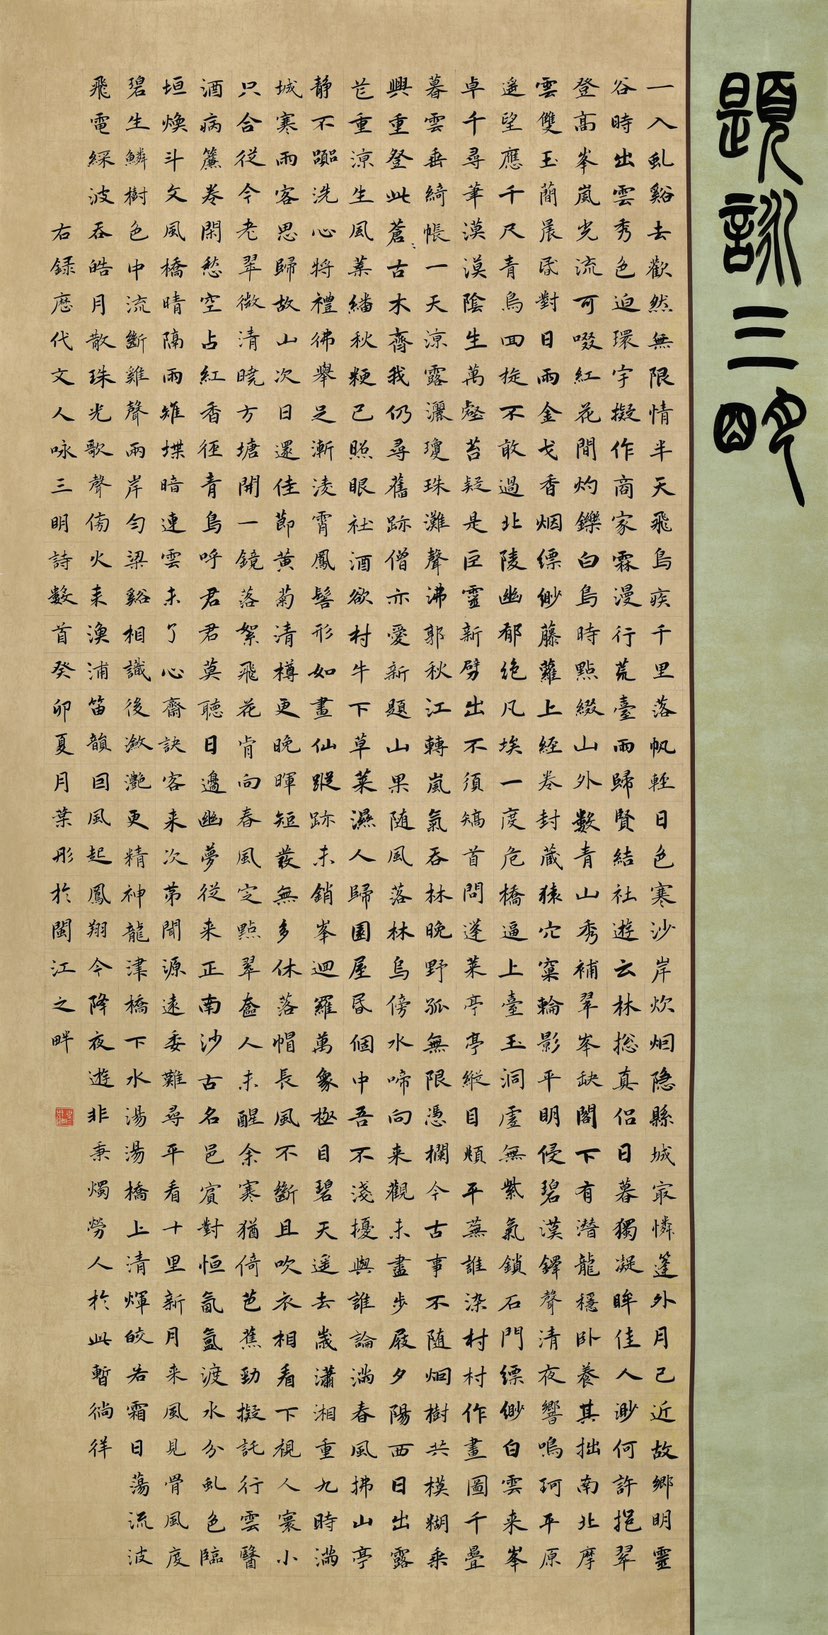 題詠三明
一入虬谿去歡然無限情半天飛鳥疾千里落帆輕日色寒沙岸炊烟隐縣城最憐篷外月已近故鄉明靈
谷時出雲秀色迫環宇擬作商家霖漫行荒臺雨歸賢結社遊云林捴真侣日暮獨凝眸佳人渺何許挹翠
登高峯嵐光流可啜紅花間灼鑠白鳥時點綴山外數青山秀補翠峯缺閣下有潜龍穩卧養其拙南北摩
雲雙玉蕳晨昏對日雨金戈香烟縹缈藤蘿上經卷封蔵猿穴窠輪影平明侵碧漠鐸聲清夜響鳴珂平原
遥望應千尺青鳥四旋不敢過北陵幽郁絶凡埃一度危橋逼上臺玉洞虚無紫氣鎖石門縹缈白雲来峯
卓千尋筆漠漠陰生萬壑苔疑是巨靈新劈出不須矯首問蓬莱亭亭縱目頫平蕪誰染村村作畫圖千疊
暮雲垂綺帳一天涼露灑瓊珠灘聲沸郭秋江轉嵐氣吞林晚野孤無限憑欄今古事不随烟樹共模糊乘
興重登此蒼古木齋我仍尋舊跡僧亦愛新題山果随風落林鳥傍水啼向来觀未盡步屐夕陽西日出露
芒重涼生風葉繙秋粳已照眼社酒欲村牛下草莱濕人歸園屋昏個中吾不淺擾與誰論満春風拂山亭
静不躧洗心將禮佛舉足漸淩霄鳳髻形如畫仙蹤跡未銷峯迴羅萬象極目碧天遥去歲瀟湘重九時満
城寒雨客思歸故山次日還佳節黄菊清樽更晚暉短髮無多休落帽長風不斷且吹衣相看下視人寰小
只合從今老翠微清曉方塘開一鏡落絮飛花肯向春風定點翠奩人未醒余寒猶倚芭蕉勁擬託行雲醫
酒病簾卷閑愁空占紅香徑青鳥呼君君莫聽日邉幽夢從来正南沙古名邑賓對恒氤氲渡水分虬色臨
垣煥斗文風橋晴隔雨雉堞暗連雲未了心齋訣客来次第聞源遠委難尋平看十里新月来風見骨風度
碧生鱗樹色中流斷雞聲兩岸匀梁谿相識後潋灧更精神龍津橋下水湯湯橋上清輝皎若霜日蕩流波
飛電綵波吞皓月散珠光歌聲傷火来漁浦笛韻回風起鳳翔今降夜遊非秉燭勞人於此暫徜徉
右録歷代文人咏三明詩数首癸卯夏月葉彤於閩江之畔